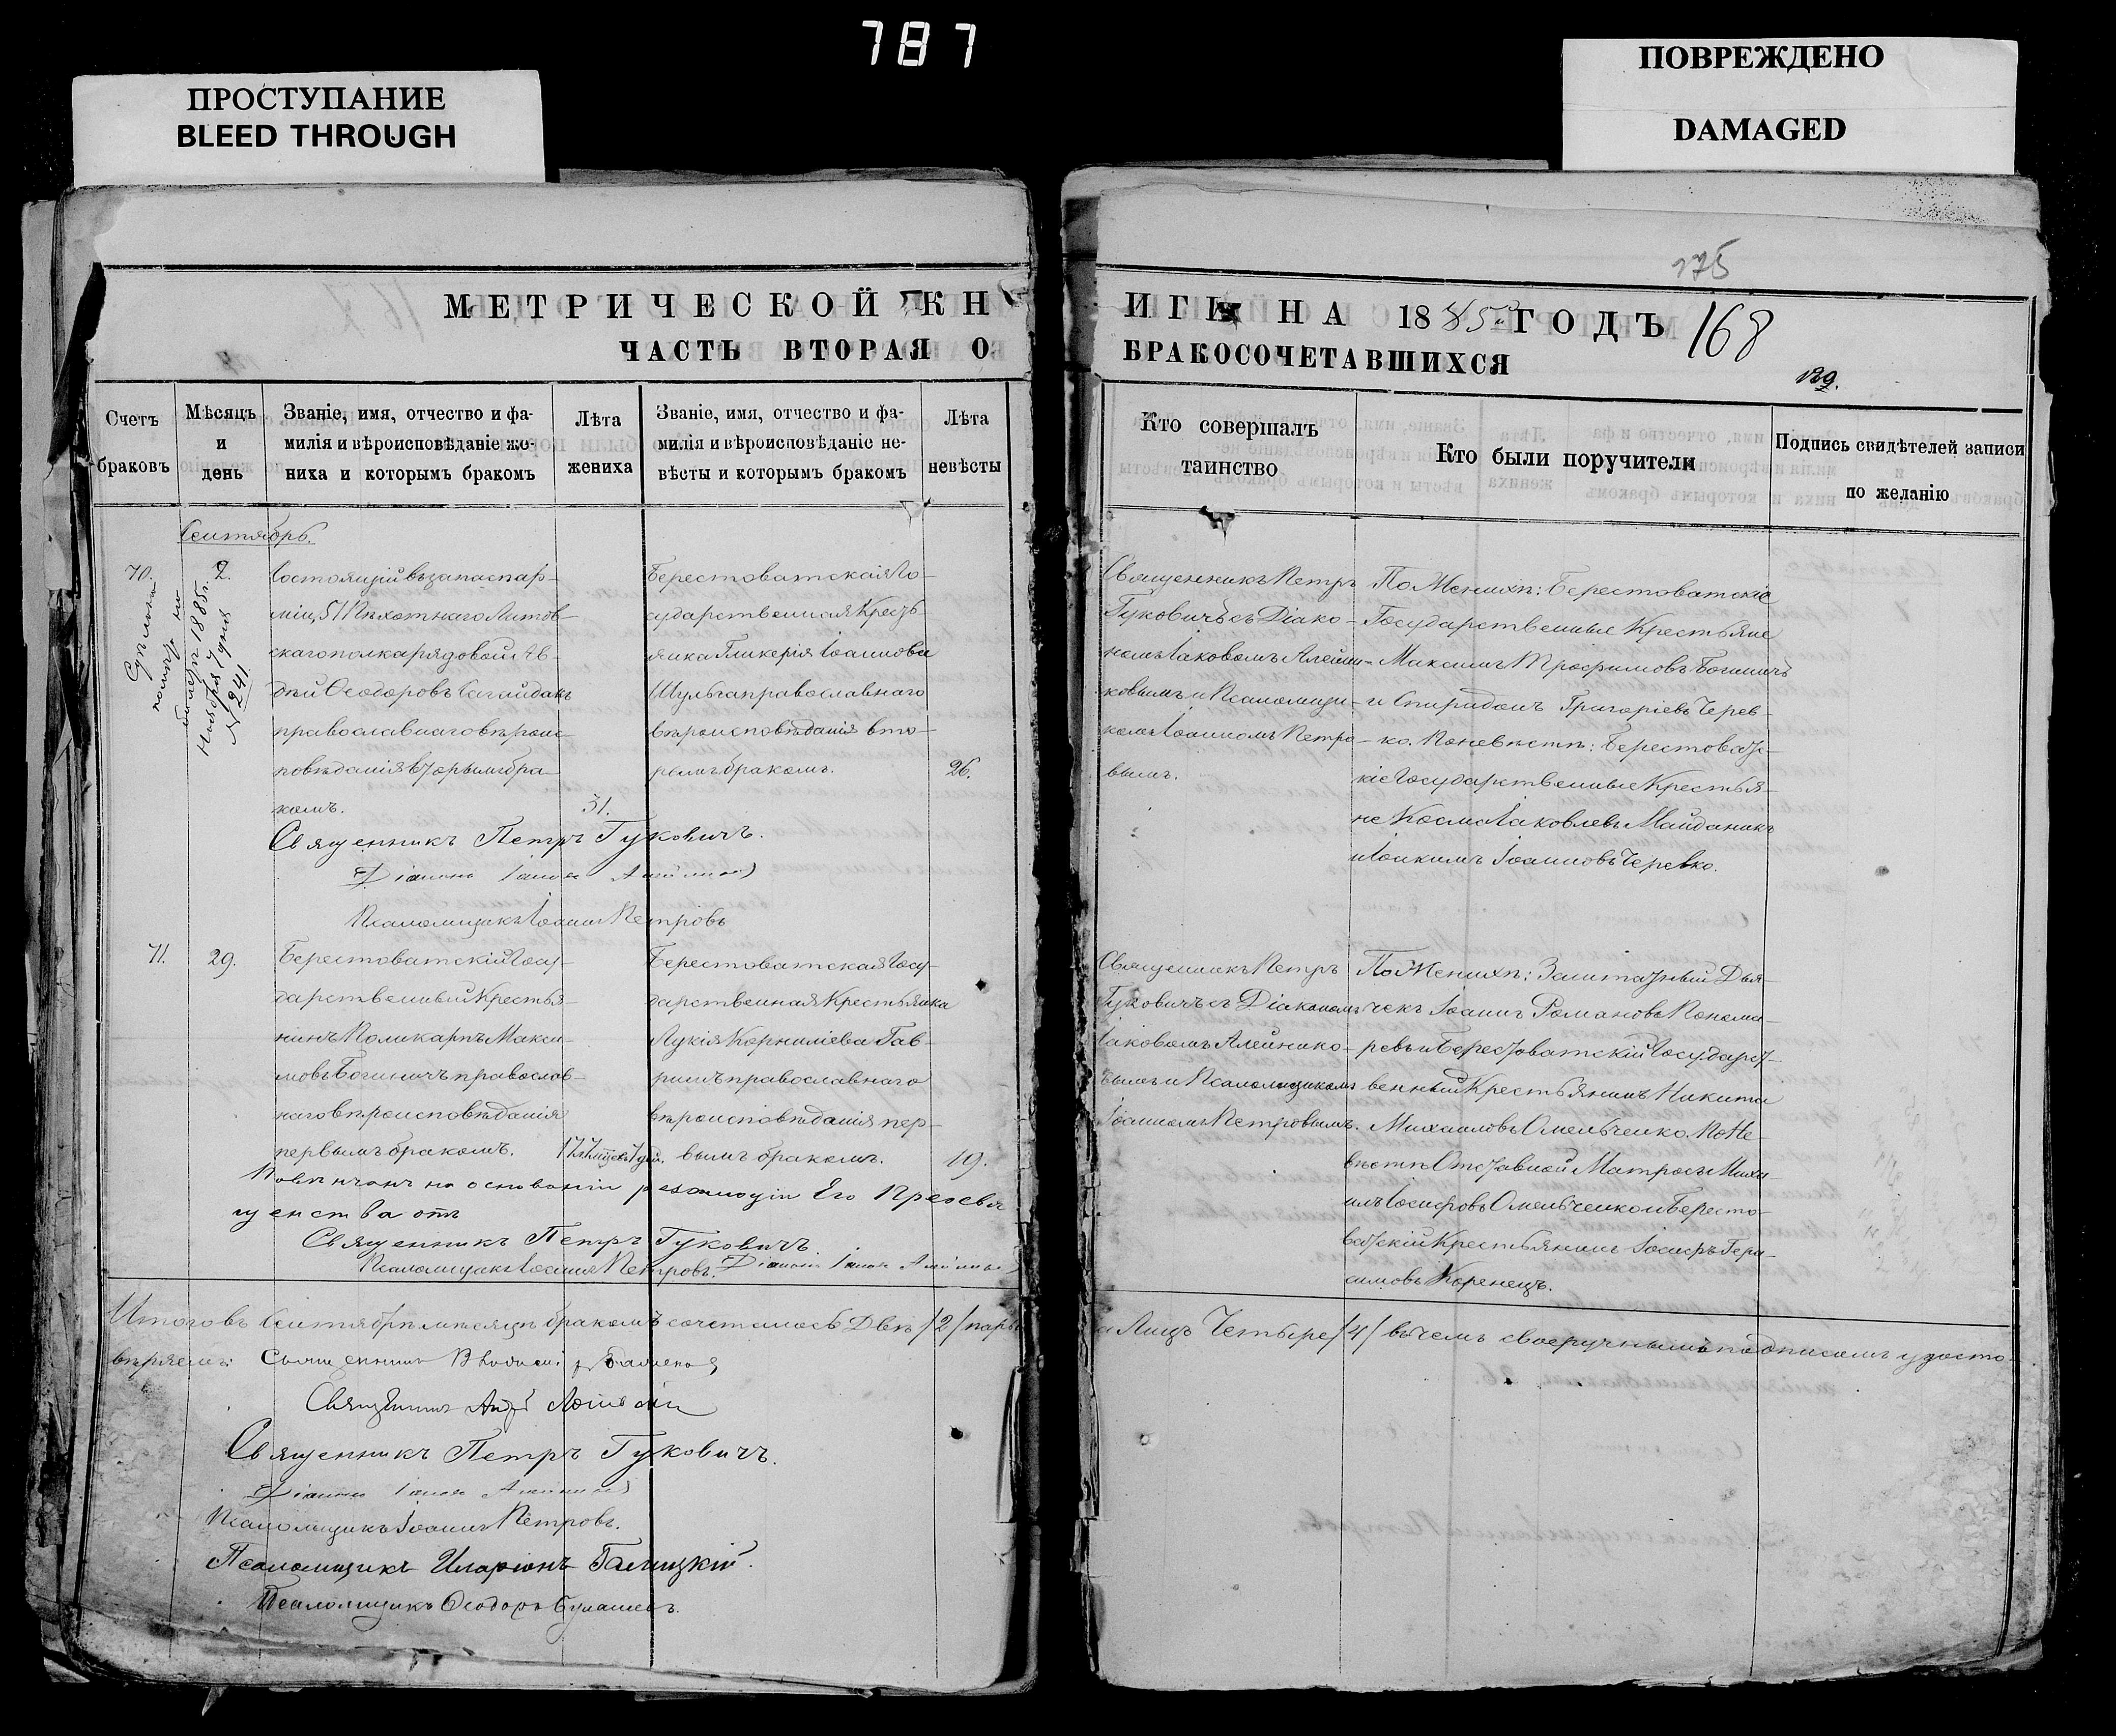 787
ПРОСТУПАНИЕ
BLEED THROUGH
ПОВРЕЖДЕНО
DAMAGED
175
МЕТРИЧЕСКОЙ КН
ЧАСТЬ ВТОРАЯ О
ИГИ НА 1885 ГОДЪ 168
БРАКОСОЧЕТАВШИХСЯ
189.
Счетъ
браковъ
Мѣсяцъ
и
день
Званіе, имя, отчество и фа-
милія и вѣроисповѣданіе же-
ниха и которымъ бракомъ
Лѣта
жениха
Званіе, имя, отчество и фа-
милія и вѣроисповѣданіе не-
вѣсты и которымъ бракомъ
Лѣта
невѣсты
Кто совершалъ
таинство
Кто были поручители
Подпись свидѣтелей записи
по желанію
Сентябрь.
70.
2.
билетъ 1885 г.
Ноября 7 дня
№ 241.
Состоящій въ запас арм-
міи, 51 Пѣхотнаго Литов-
скаго полка рядовой Ав-
дѣй Ѳеодоровъ Сагайдакъ
православнаго вѣроис-
повѣданія вторымъ бра-
комъ.
31.
Берестоватская Го-
сударственная Кресть-
янка Гликерія Іоаннова
Шульга православнаго
вѣроисповѣданія вто-
рымъ бракомъ.
26.
Священникъ Петръ
Гуковичъ съ Діако-
номъ Іаковомъ Алейни-
ковымъ и Псаломщи-
комъ Іоанномъ Петро-
вымъ.
По Женихѣ: Берестоватскіе
Государственные Крестьяне
Максимъ Трофимовъ Богиничъ
и Спиридонъ Григоріевъ Черев-
ко. По невѣстѣ: Берестоватс-
кіе Государственные Крестья-
не Косма Іаковлевъ Майданикъ
и Іоакимъ Іоанновъ Черевко.
Священникъ Петръ Гуковичъ.
Діаконъ Іаковъ Алейниковъ
Псаломщикъ Іоаннъ Петровъ
71.
29.
Берестоватскій Госу-
дарственный Крестья-
нинъ Поликарпъ Макси-
мовъ Богиничъ православ-
наго вѣроисповѣданія
первымъ бракомъ.
17 л. 7 мѣсяц. 7 дн.
Берестоватская Госу-
дарственная Крестьянка
Лукія Корниліева Гав-
ришъ православнаго
вѣроисповѣданія пер-
вымъ бракомъ.
19.
Священникъ Петръ
Гуковичъ съ Діакономъ
Іаковомъ Алейнико-
вымъ и Псаломщикомъ
Іоанномъ Петровымъ.
По Женихѣ: Заштатный Дья-
чекъ Іоаннъ Романовъ Понома-
ревъ и Берестоватскій Государст-
венный Крестьянинъ Никита
Михаиловъ Омельченко. По Не-
вѣстѣ Отставной Матросъ Миха-
илъ Іосифовъ Омельченко и Бересто-
ватскій Крестьянинъ Іосифъ Гера-
симовъ Коренецъ.
Повѣнчанъ на основаніи резолюціи Его Преосвя
щенства отъ
Священникъ Петръ Гуковичъ.
Псаломщикъ Іоаннъ Петровъ. Діаконъ Іаковъ Алейниковъ
Итого въ Сентябрѣ мѣсяцѣ бракомъ сочеталось Двѣ /2/ пары
а Лицъ Четыре /4/ въ чемъ своеручнымъ подписомъ удосто-
вѣряемъ: Священникъ
Священникъ
Священникъ Петръ Гуковичъ.
Діаконъ Іаковъ Алейниковъ
Псаломщикъ Іоаннъ Петровъ.
Псаломщикъ Иларіонъ Галицкій.
Псаломщикъ Ѳеодоръ